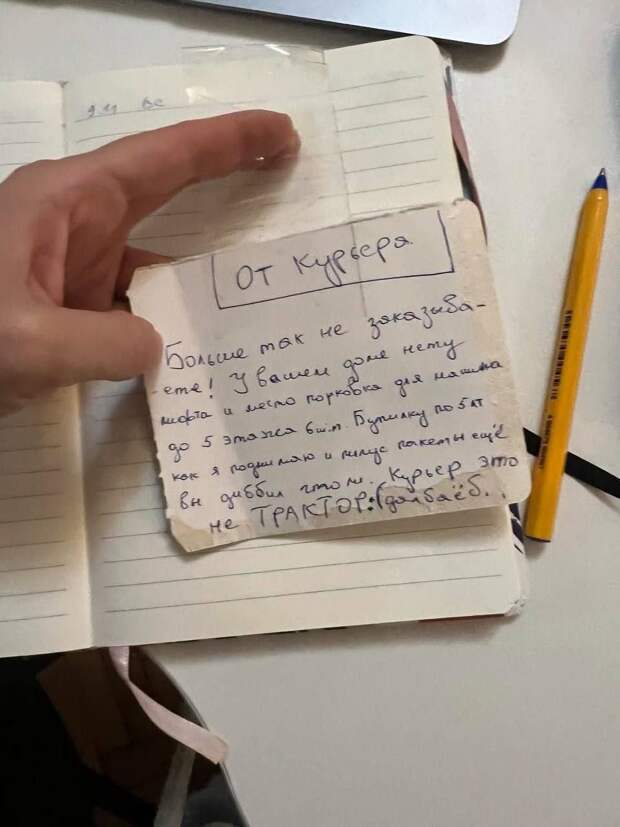 9.11 вс
От Курьера
Больше так не заказыва-
-ете! У вашем доме нету
лифта и место порковка для машина
до 5 этажа 6 ш.т. Бутилку по 5 лт
как я поднимаю и плюс пакеты ещё
вы диббил штоли. Курьер это
не ТРАКТОР:( далбаёб.